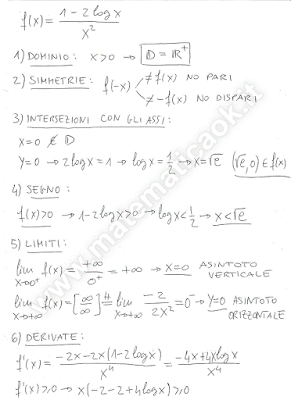 f(x) = (1 - 2 log x) / x²
1) DOMINIO: x>0 → D = ℝ⁺
2) SIMMETRIE: f(-x) ≠ f(x) NO PARI
≠ -f(x) NO DISPARI
3) INTERSEZIONI CON GLI ASSI:
x=0 ∉ D
y=0 → 2 log x = 1 → log x = 1/2 → x = √e (√e, 0) ∈ f(x)
4) SEGNO:
f(x)>0 → 1 - 2 log x > 0 → log x < 1/2 → x < √e
5) LIMITI:
lim x→0⁺ f(x) = +∞/0⁺ = +∞ → x=0 ASINTOTO VERTICALE
lim x→+∞ f(x) = [∞/∞] H= lim x→+∞ -2/2x² = 0⁻ → y=0 ASINTOTO ORIZZONTALE
6) DERIVATE:
f'(x) = (-2x - 2x(1 - 2 log x)) / x⁴ = (-4x + 4x log x) / x⁴
f'(x) ≥ 0 → x(-2 - 2 + 4 log x) ≥ 0
www.matematicaok.it